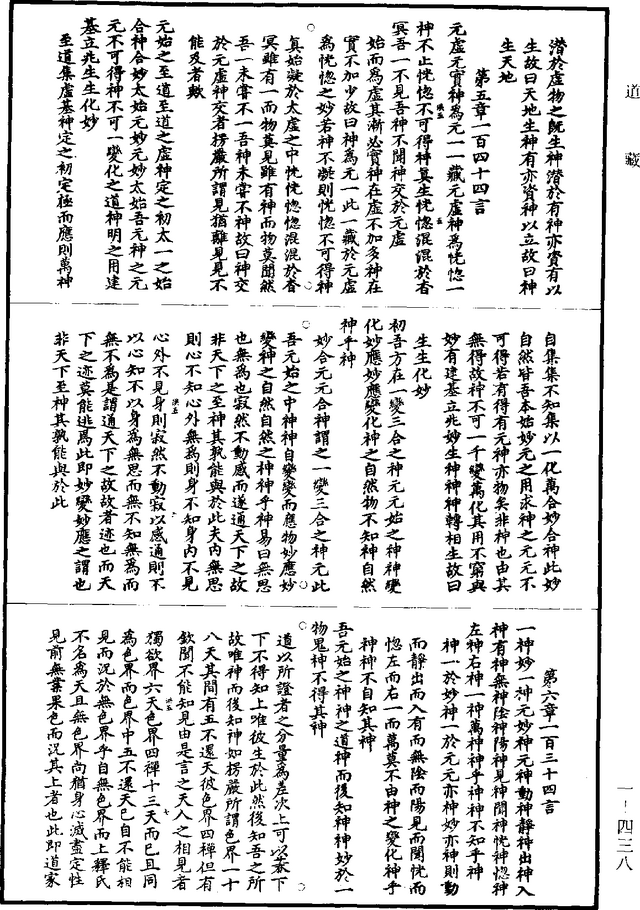 道藏
潛於虛物之旣生神潛於有神亦資有以
生故曰天地生神有亦資神以立故曰神
生天地
第五章一百四十四言
元虛元實神為元一一藏元虛神為恍惚一
神不止恍惚不可得神眞生恍惚混混於杳
冥吾一不見吾神不聞神交於元虛
始而為虛其漸必實神在虛不加多神在
實不加少故曰神為元一此一藏於元虛
為恍惚之妙若神不凝則恍惚不可得神
眞始凝於太虛之中恍恍惚惚混混於杳
冥雖有一而物莫見雖有神而物莫聞然
吾一未嘗不一吾神未嘗不神故曰神交
於元虛神交者楞嚴所謂見猶離見見不
能及者歟
元始之至道至道之虛神定之初太一之始
合神合妙太始元妙元妙太始吾元神之元
元不可得神不可一變化之道神明之用建
基立兆生生化妙
至道集虛基神定之初定極而應則萬神
自集集不知集以一化萬合妙合神此妙
自然皆吾本始妙元之用求神之元元不
可得若有得有元神亦物矣非神也由其
無得故神不可一千變萬化其用不窮與
妙有建基立兆妙生神神神轉相生故曰
生生化妙
初吾方在一變三合之神元元始之神神變
化妙應妙應變化神之自然物不知神自然
神乎神
妙合元元合神謂之一變三合之神元此
吾元始之中神神自變變而應物妙應妙
變神之自然自然之神神乎神易曰無思
也無為也寂然不動感而遂通天下之故
非天下之至神其孰能與於此夫內無思
則心不知心外無為則身不知身內不見
心外不見身則寂然不動寂以感通則不
以心知不以身為無思而無不知無為而
無不為是謂通天下之故故者迹也而天
下之迹莫能逃焉此即妙變妙應之謂也
非天下至神其孰能與於此
第六章一百三十四言
一神妙一神元妙神元神動神靜神出神入
神有神無神陰神陽神見神聞神恍神惚神
左神右神一神萬神神乎神神不知乎神
神一於妙神一於元元亦神妙亦神則動
而靜出而入有而無陰而陽見而聞恍而
惚左而右一而萬莫不由神之變化神乎
神神不自知其神
吾元始之神神之道神而後知神神妙於一
物鬼神不得其神
道以所證者之分量為差次上可以奉下
下不得知上唯彼生於此然後知吾之所
故唯神而後知神如楞嚴所謂色界一十
八天其間有五不還天彼色界四禪但有
欽聞不能知見由是言之天人之相見者
獨欲界六天色界四禪十三天而已且同
為色界而色界中五不還天已自不能相
見而況於無色界乎自無色界而上釋氏
不名為天且無色界尚猶身心滅盡定性
見前無業果色而況其上者也此即道家
一—四三八